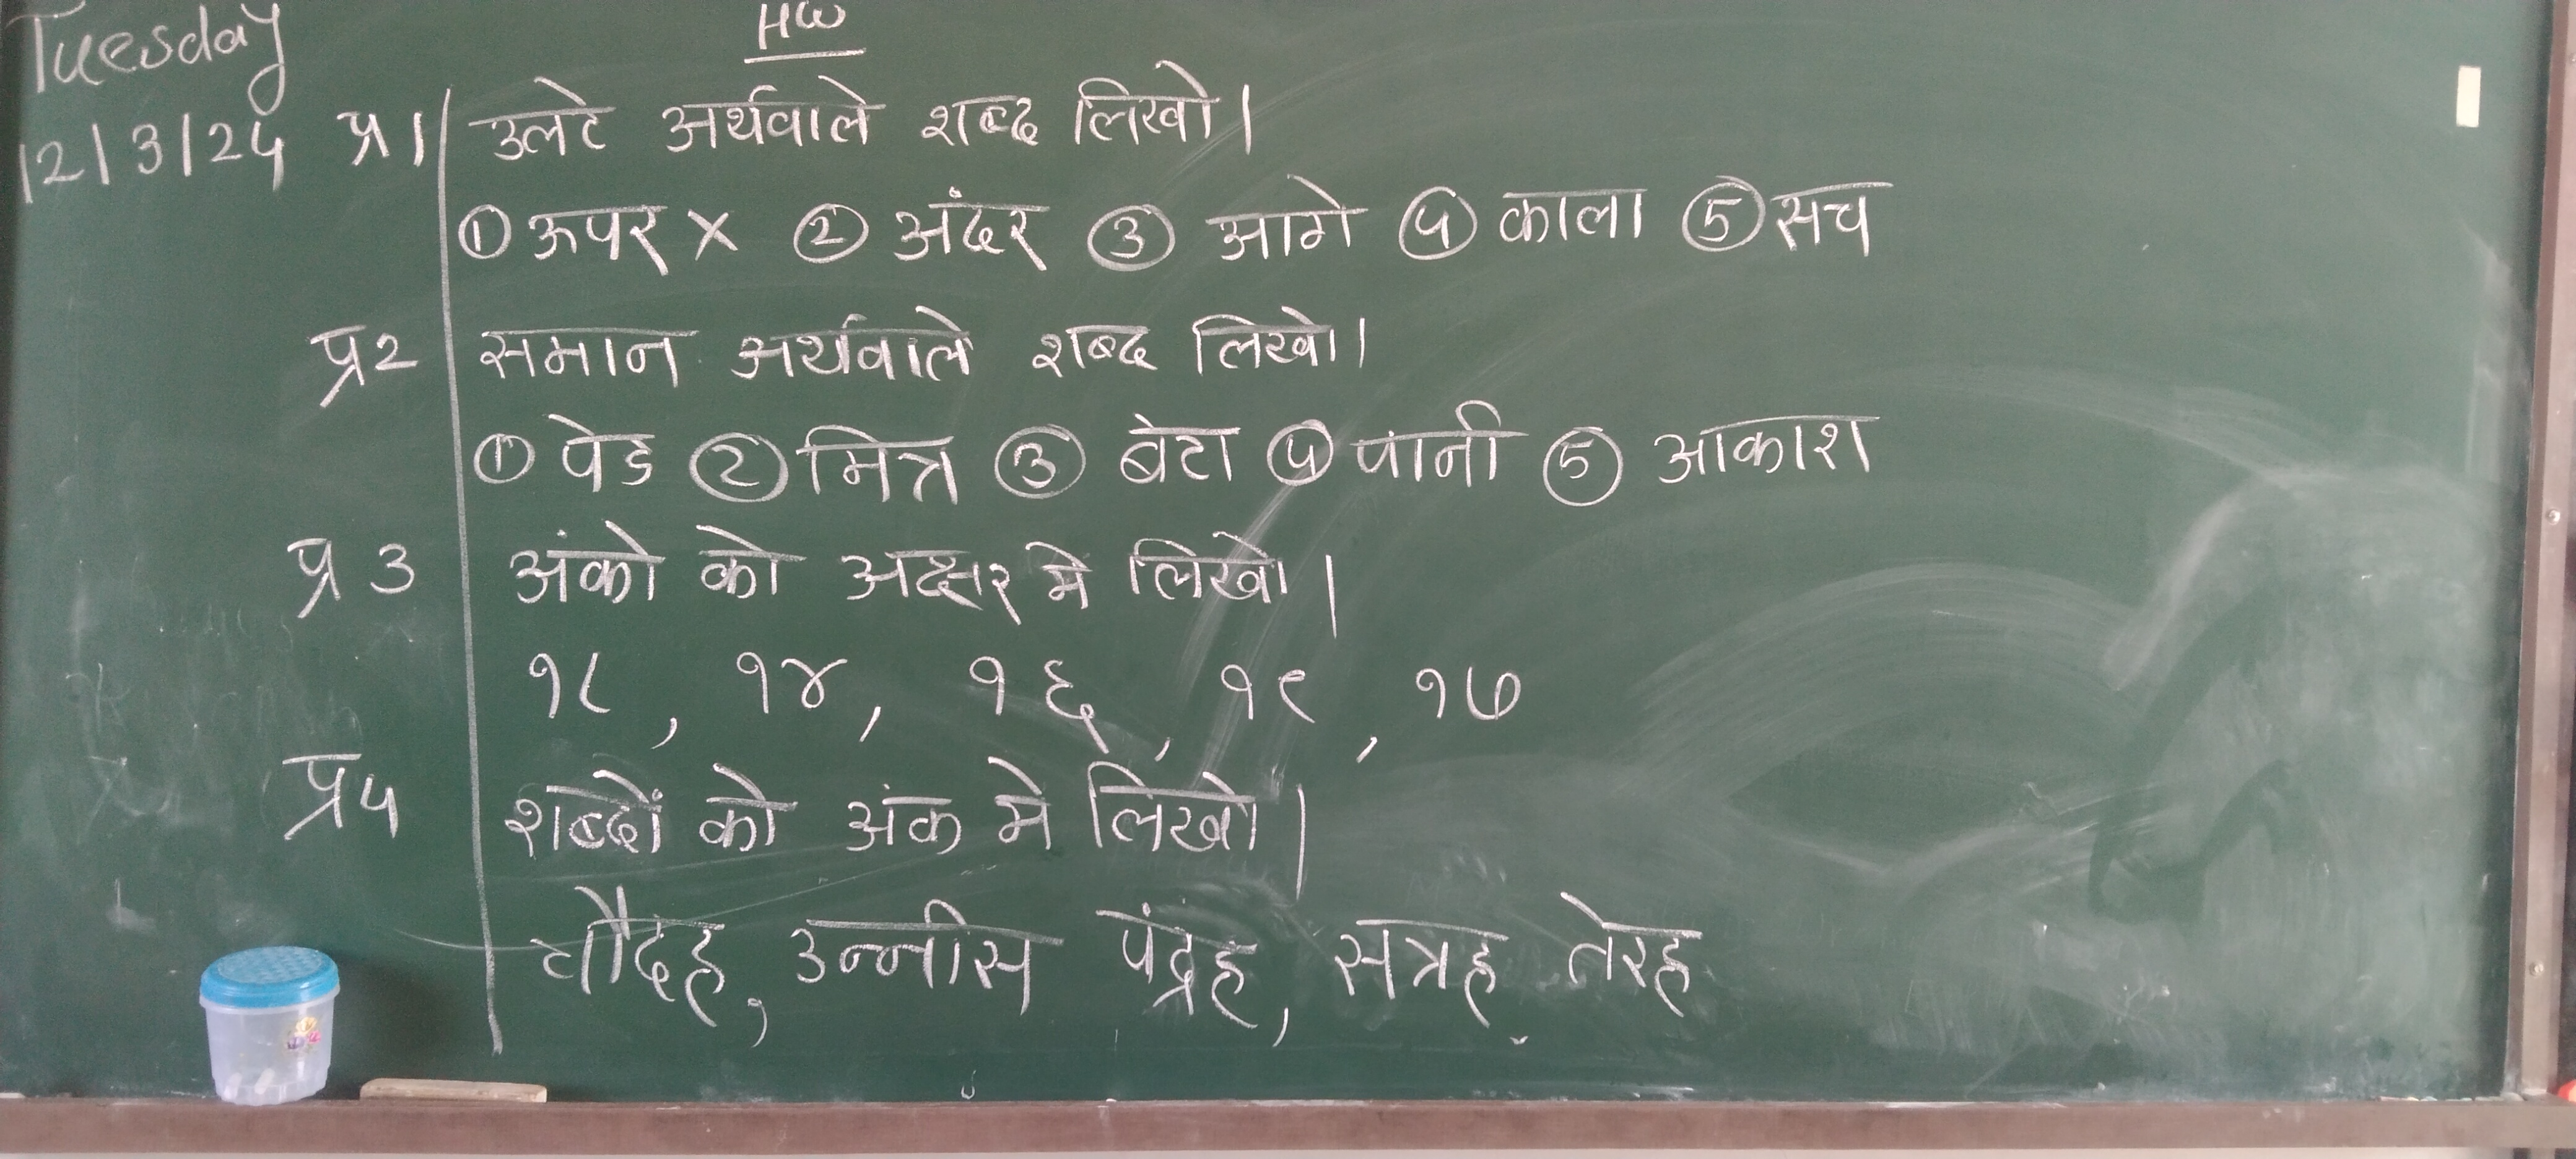 Tuesday
HW
12/3/24
प्र 1 उलटे अर्थवाले शब्द लिखो।
① ऊपर × ② अंदर ③ आगे ④ काला ⑤ सच
प्र2 समान अर्थवाले शब्द लिखो।
① पेड ② मित्र ③ बेटा ④ पानी ⑤ आकाश
प्र 3 अंको को अक्षर मे लिखो।
१८, १४, १६, १९, १७
प्र4 शब्दों को अंक मे लिखो।
चौदह, उन्नीस पंद्रह, सत्रह तेरह